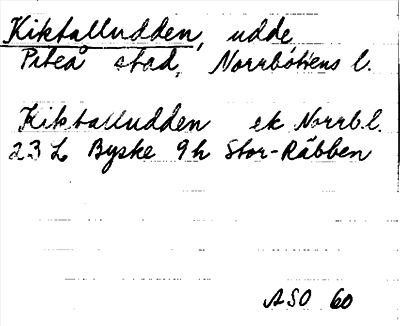 Kiktalludden, udde
Piteå stad, Norrbottens l.
Kiktalludden ek Norrb.l.
23 L Byske 9h Stor-Räbben
ASO 60